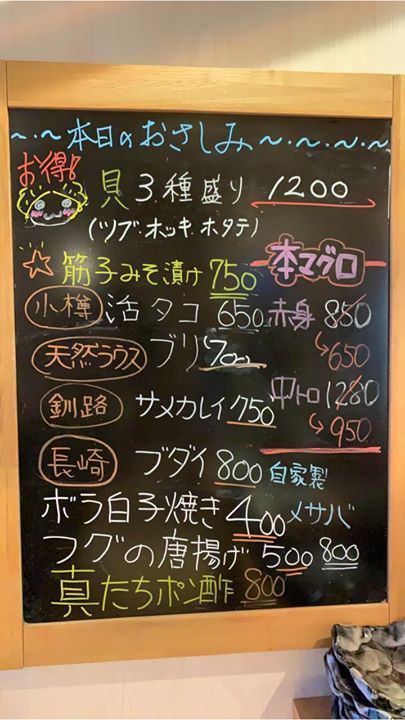 ~・~本日のおさしみ~・~・~・~
お得!
貝3種盛り 1200
(ツブ・ホッキ・ホタテ)
☆筋子みそ漬け 750
小樽 活タコ 650
天然ラウス ブリ 700
釧路 サメカレイ 750
長崎 ブダイ 800
本マグロ
赤身 850
↳650
中トロ 1280
↳950
自家製
メサバ
800
ボラ白子焼き 400
フグの唐揚げ 500
真たちポン酢 800